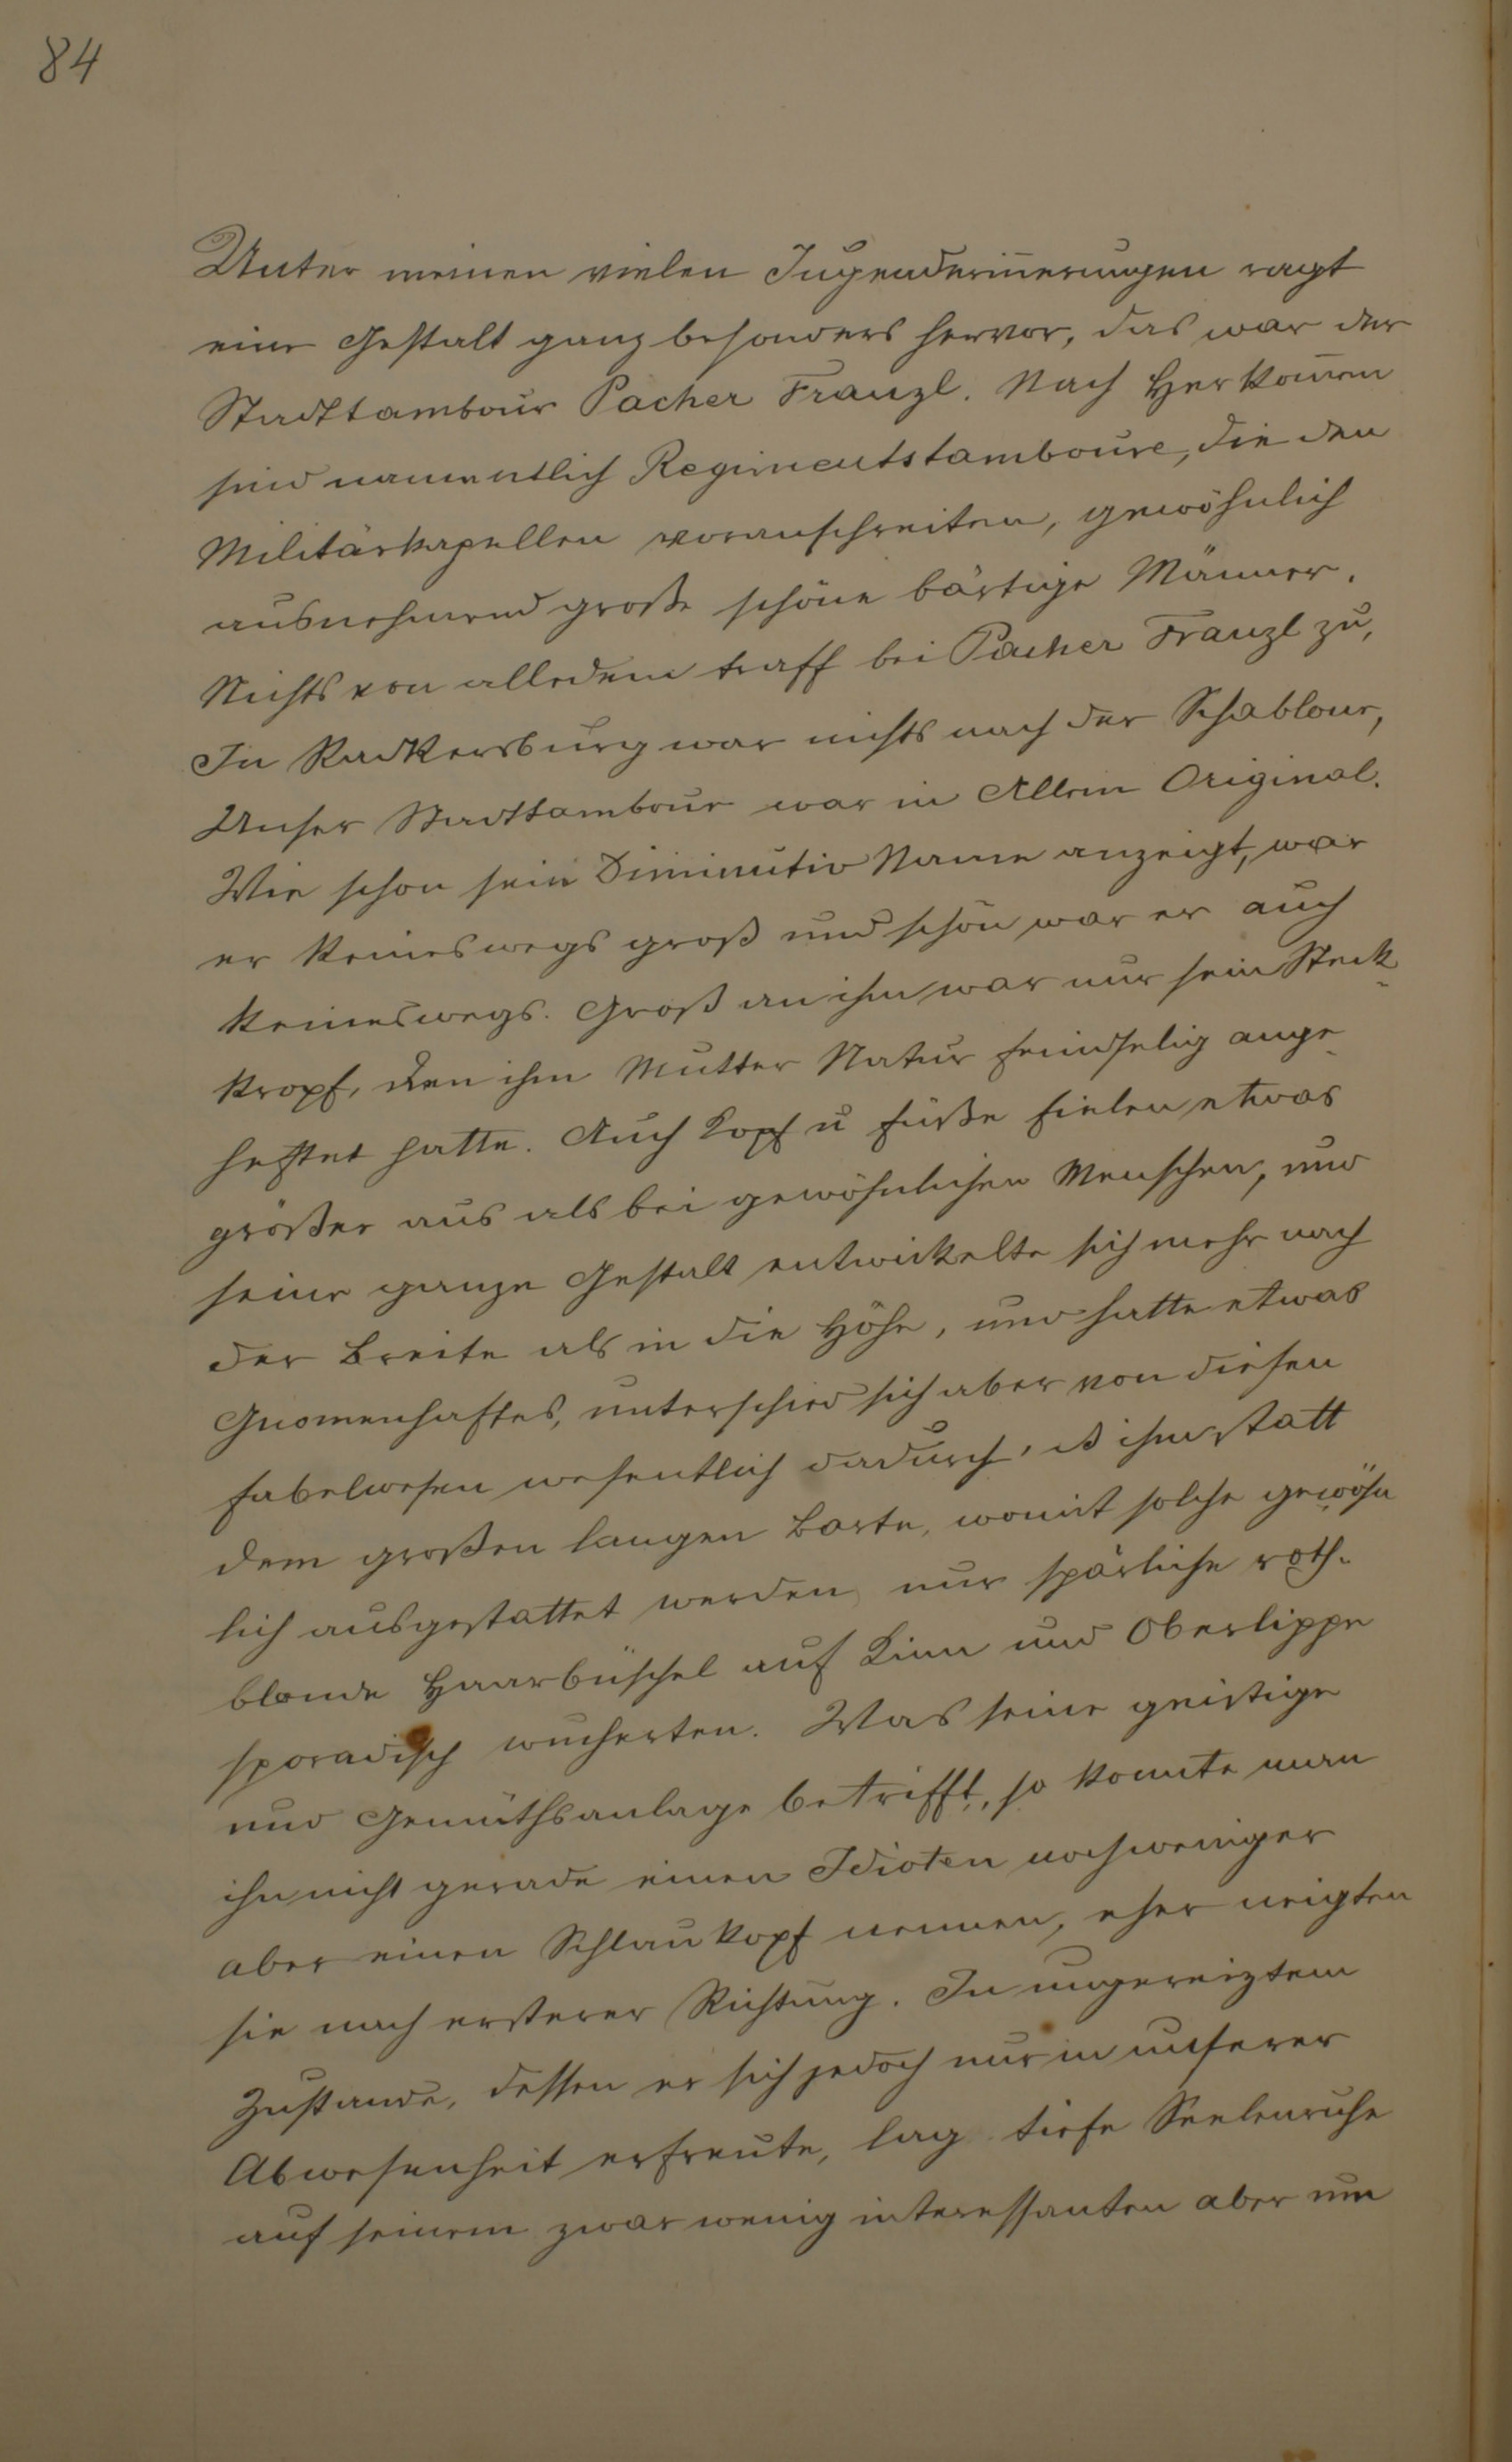 84
Unter meinen vielen Jugenderin̄erungen ragt
eine Gestalt ganz besonders hervor, das war der
Stadttambour Pacher Franzl. Nach Herkom̄en
sind namentlich Regimentstamboure, die den
Militärkapellen voranschreiten, gewöhnlich
ausnehmend große schöne bärtige Männer.
Nichts von alledem traff bei Pacher Franzl zu,
In Radkersburg war nichts nach der Schablone,
Unser Stadttambour war in Allem Original.
Wie schon sein Diminutiv Name anzeigt, war
er keineswegs groß und schön war er auch
keineswegs. Groß an ihm war nur sein Steck-
kropf, den ihm Mutter Natur feindselig ange-
heftet hatte. Auch Kopf u Füße fielen etwas
größer aus als bei gewöhnlichen Menschen, und
seine ganze Gestalt entwickelte sich mehr nach
der Breite als in die Höhe, und hatte etwas
Gnomenhaftes, unterschied sich aber von diesen
Fabelwesen wesentlich dadurch, ihm statt
dem großen langen Barte, womit solche gewöhn
lich ausgestattet werden nur spärliche roth-
blonde Haarbüschel auf Kinn und Oberlippe
sporadisch wucherten. Was seine geistige
und Gemüthsanlage betrifft, so konnte man
ihn nicht gerade einen Idioten noch weniger
aber einen Schlaukopf nennen, eher neigten
sie nach ersterer Richtung. In ungereiztem
Zustande, dessen er sich jedoch nur in unserer
Abwesenheit erfreute, lag tiefe Seelenruhe
auf seinem zwar wenig interessanten aber um